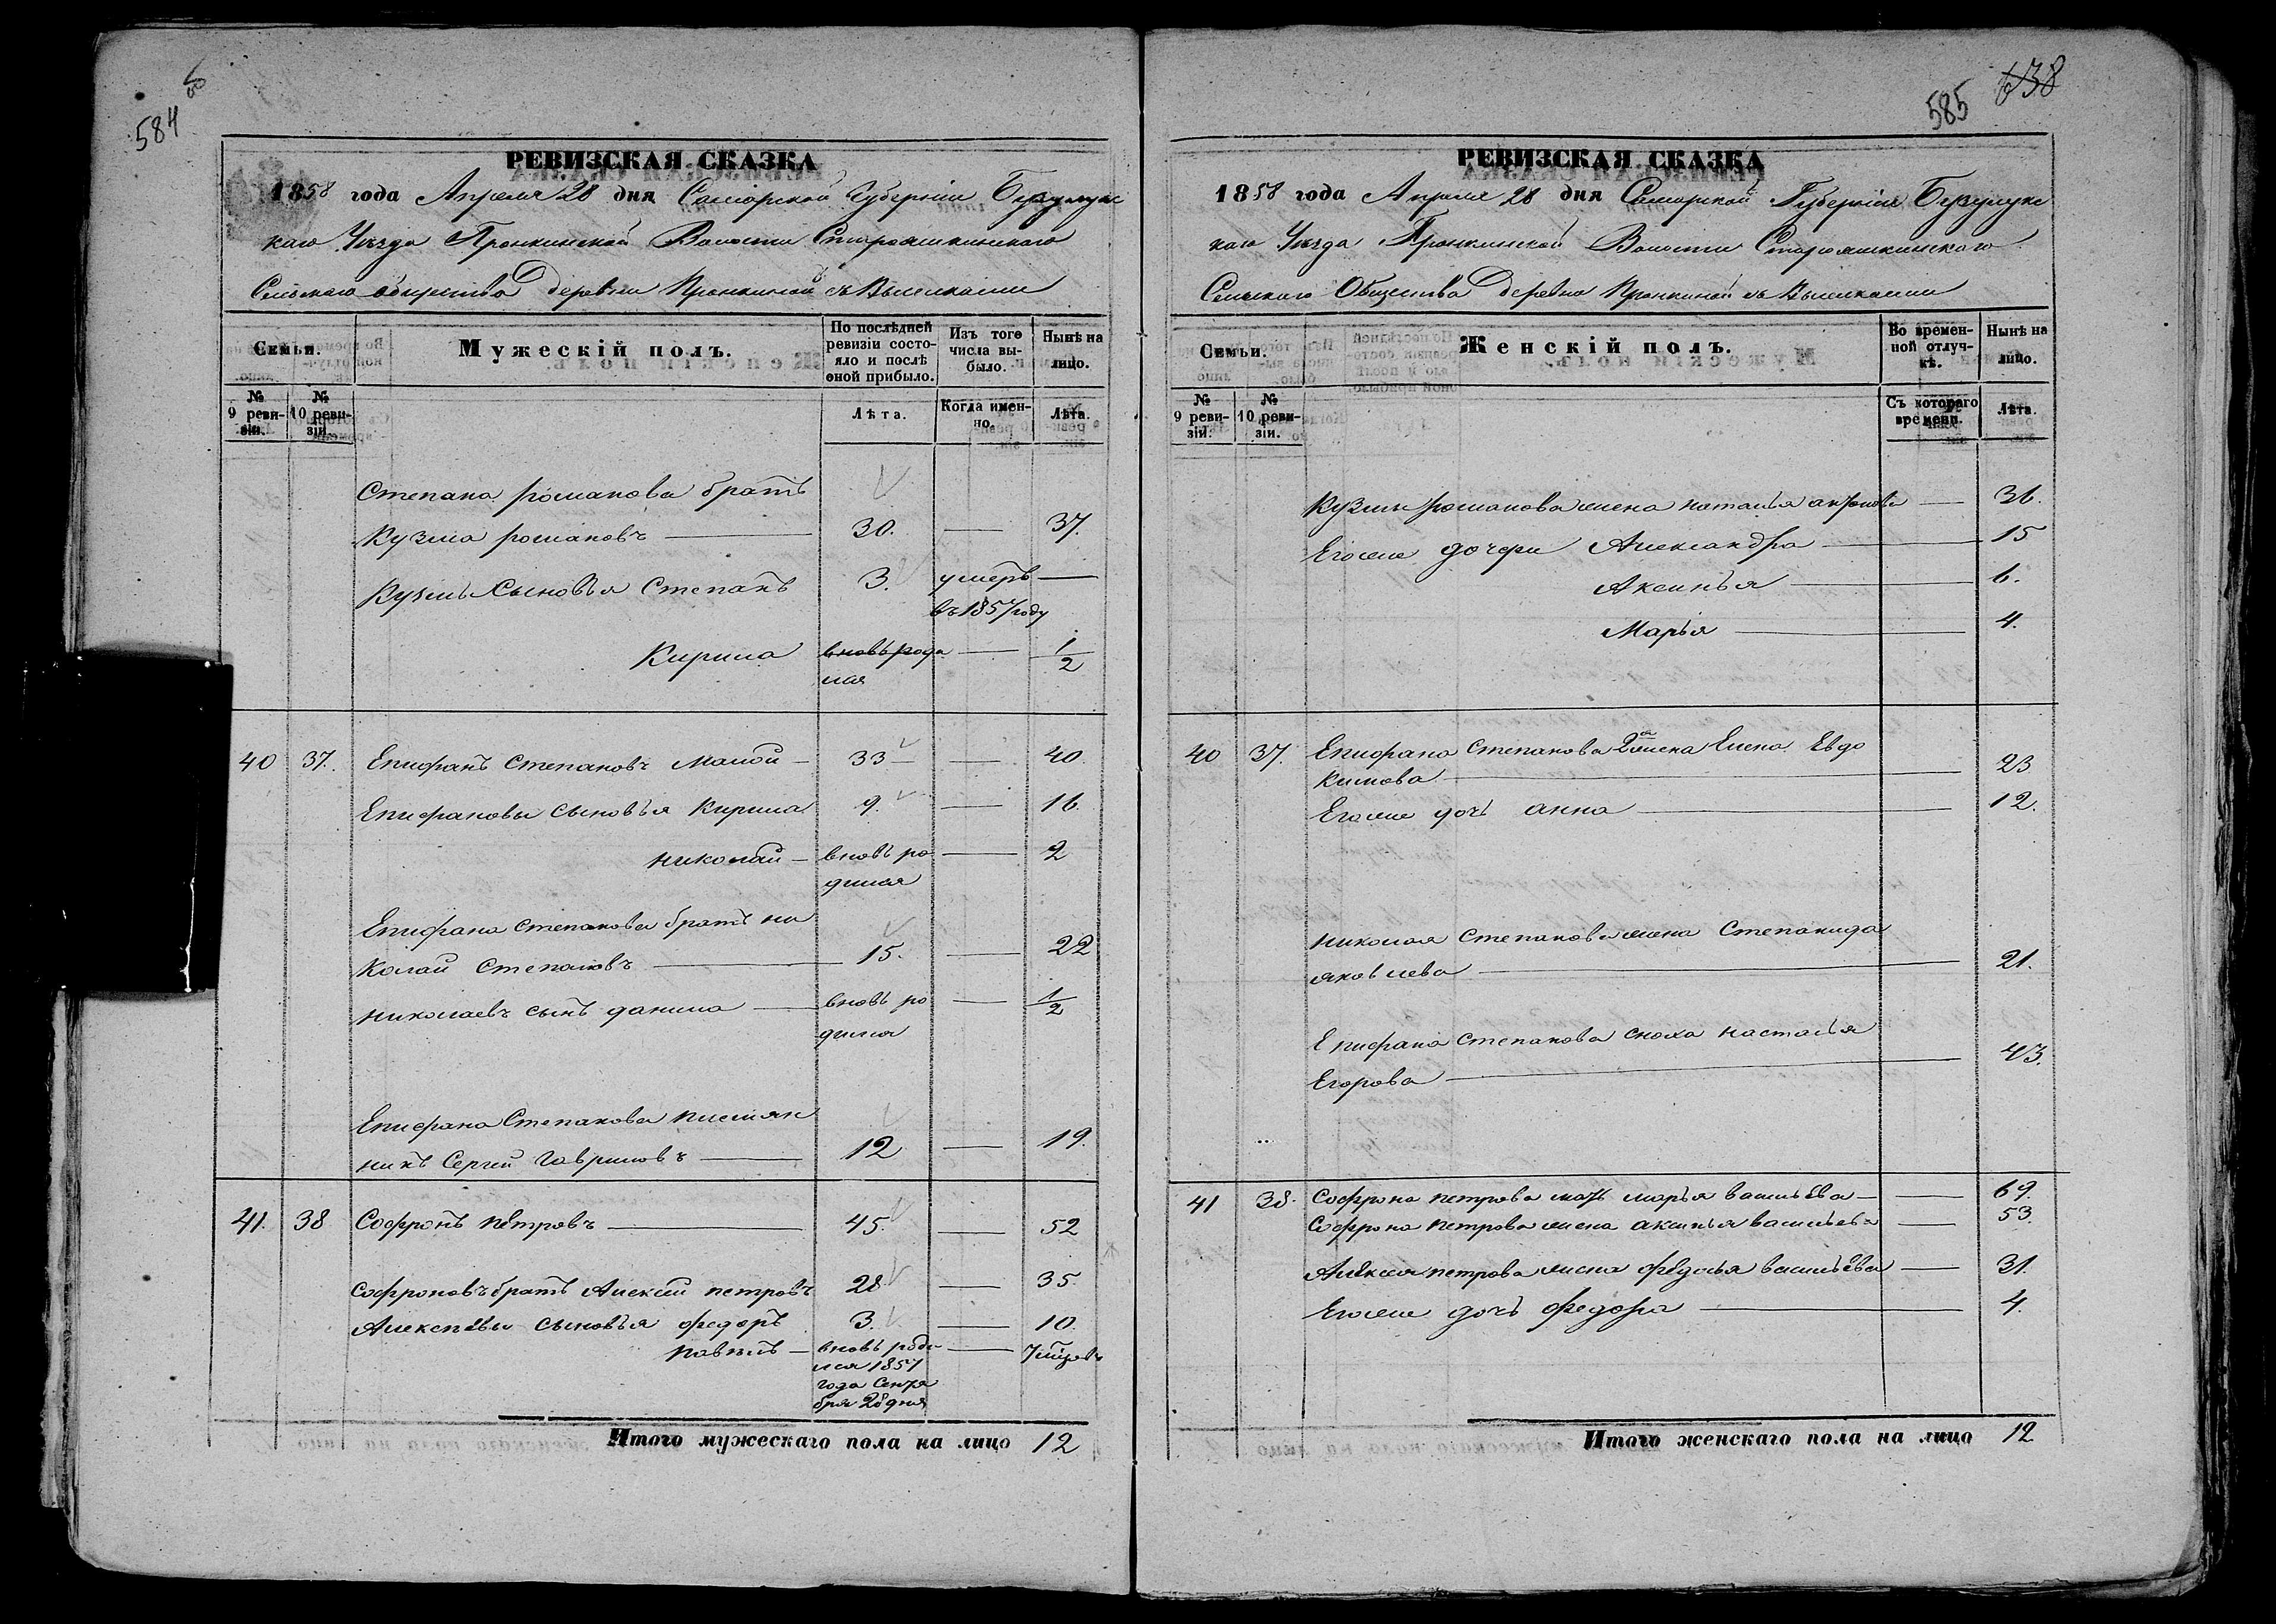 584 об
РЕВИЗСКАЯ СКАЗКА
1858 года Апреля 28 дня Самарской Губернiи Бузулукс
каго Уѣзда Пронкинской Волости Староашкинскаго
Сельскаго общества деревни Пронкиной съ Выселками
Семьи.
Мужескiй полъ.
По послѣдней ревизiи состояло и послѣ оной прибыло.
Изъ того числа выбыло.
Нынѣ на лицо.
№ 9 ревизiи.
№ 10 ревизiи.
Лѣта.
Когда именно.
Лѣта.
Степана романова братъ
Кузма романовъ 30. 37.
Кузмы Сыновья Степанъ 3. умеръ
въ 1857 году
Кирила вновь роди 1/2
лся
40 37. Епифанъ Степановъ Малой 33 40.
Епифановы сыновья Кирила 9. 16.
николай вновь ро 2
дился
Епифана степанова братъ ни
колай Степановъ 15. 22
николаевъ сынъ данила вновь ро 1/2
дился
Епифана Степанова племян
никъ Сергей Гавриловъ 12 19.
41. 38 Софронъ петровъ 45. 52
софроновъ братъ Алексей петровъ 28 35.
Алексеевы сыновья федоръ 3. 10.
павелъ вновь роди 7 мцовъ
лся 1857
года Сентя
бря 28 дня
Итого мужескаго пола на лицо 12
585 638
РЕВИЗСКАЯ СКАЗКА
1858 года Апреля 28 дня Самарской Губернiи Бузулукс
каго Уѣзда Пронкинской Волости Староашкинскаго
Сельскаго Общества деревни Пронкиной съ Выселками
Семьи.
Женскiй полъ.
Во временной отлучкѣ.
Нынѣ на лицо.
№ 9 ревизiи.
№ 10 ревизiи.
Съ котораго времени.
Лѣта.
Кузмы романова жена наталья 36.
Егоже дочери Александра 15
Аксинья 6.
Марья 4.
40 37. Епифана степанова 2ая жена Елена Евдо
кимова 23
Егоже дочь анна 12.
николая степанова жена Степанида
яковлева 21.
Епифана степанова сноха настасья
Егорова 43.
41 38. Софрона петрова мать марья васильева 69.
Софрона петрова жена аксинья васильева 53.
Алексея петрова жена федосья васильева 31.
Егоже дочь федора 4.
Итого женскаго пола на лицо 12